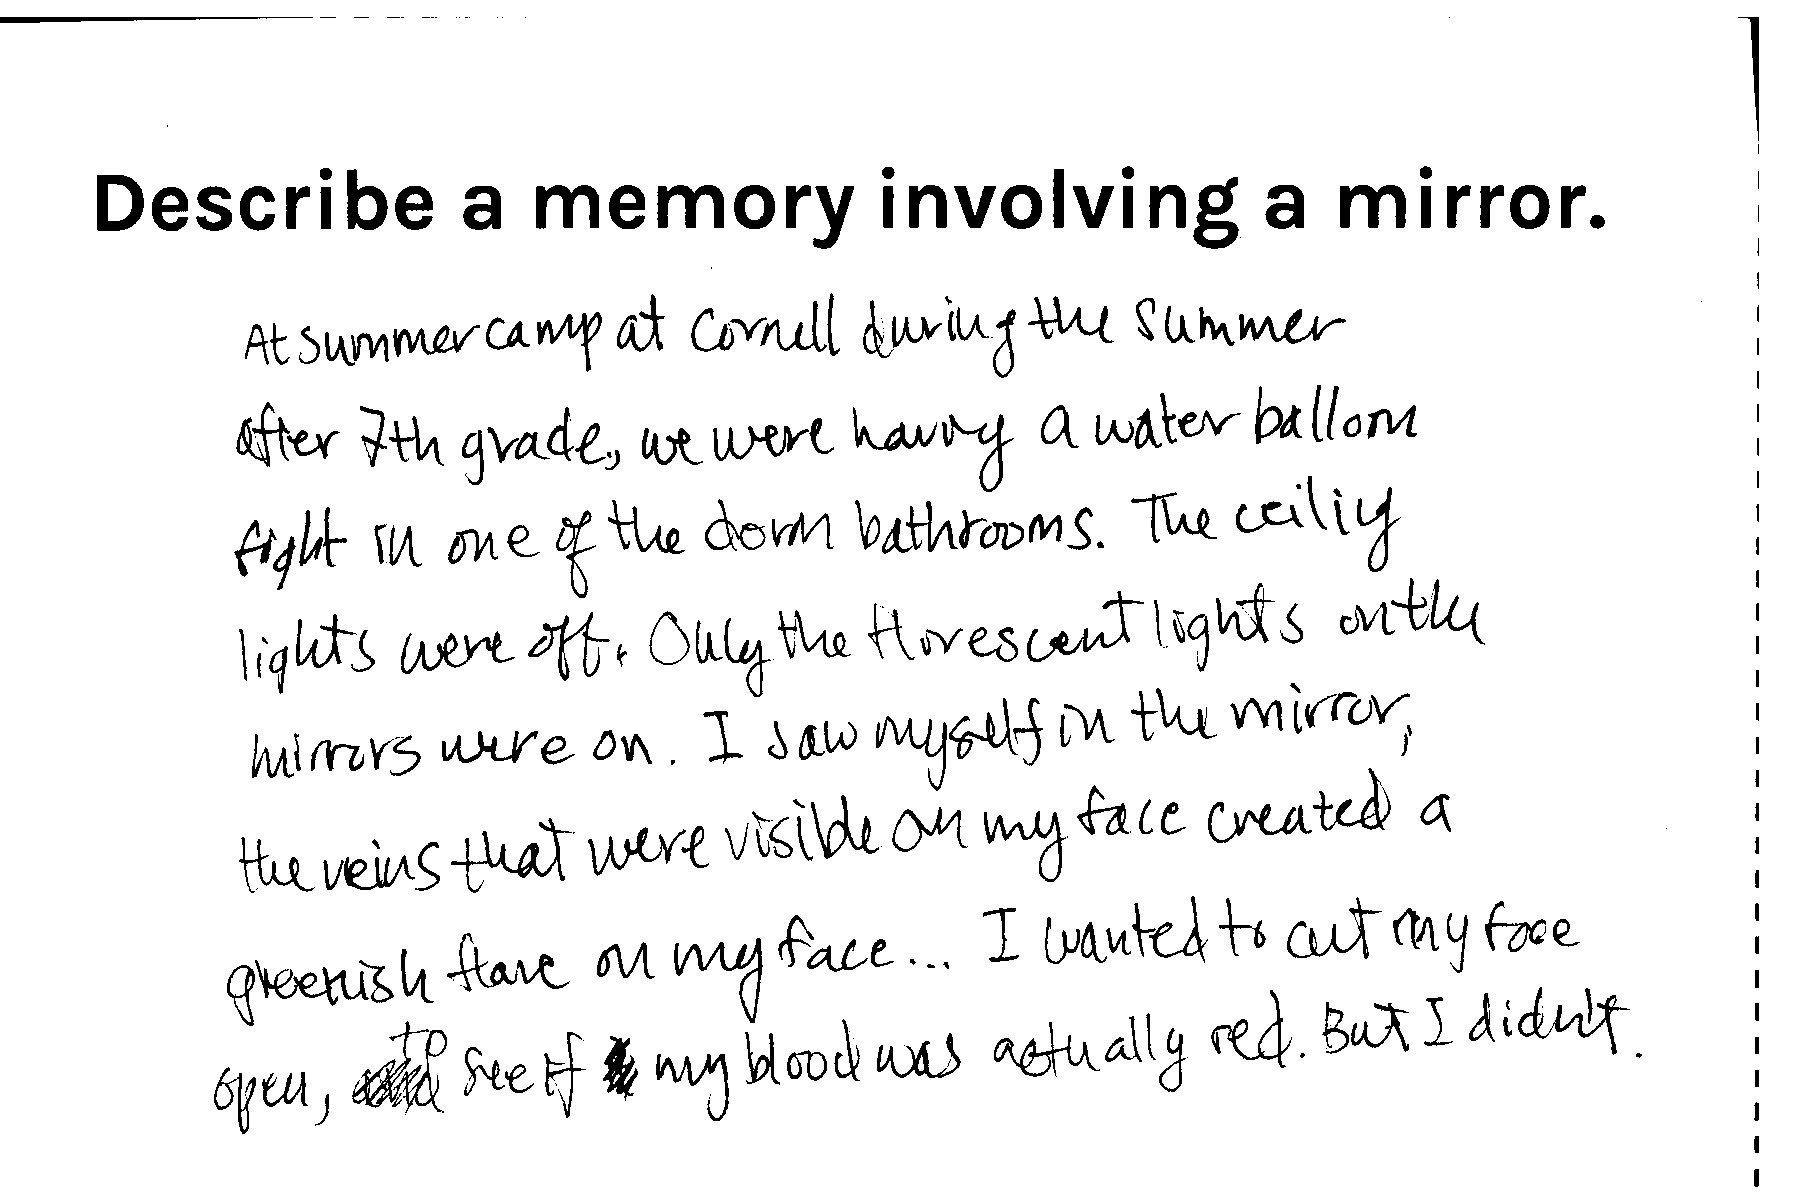 Describe a memory involving a mirror.
At summer camp at Cornell during the summer
after 7th grade, we were having a water balloon
fight in one of the dorm bathrooms. The ceiling
lights were off. Only the florescent lights on the
mirrors were on. I saw myself in the mirror,
the veins that were visible on my face created a
greenish flare on my face... I wanted to cut my face
open, to see if my blood was actually red. But I didn't.